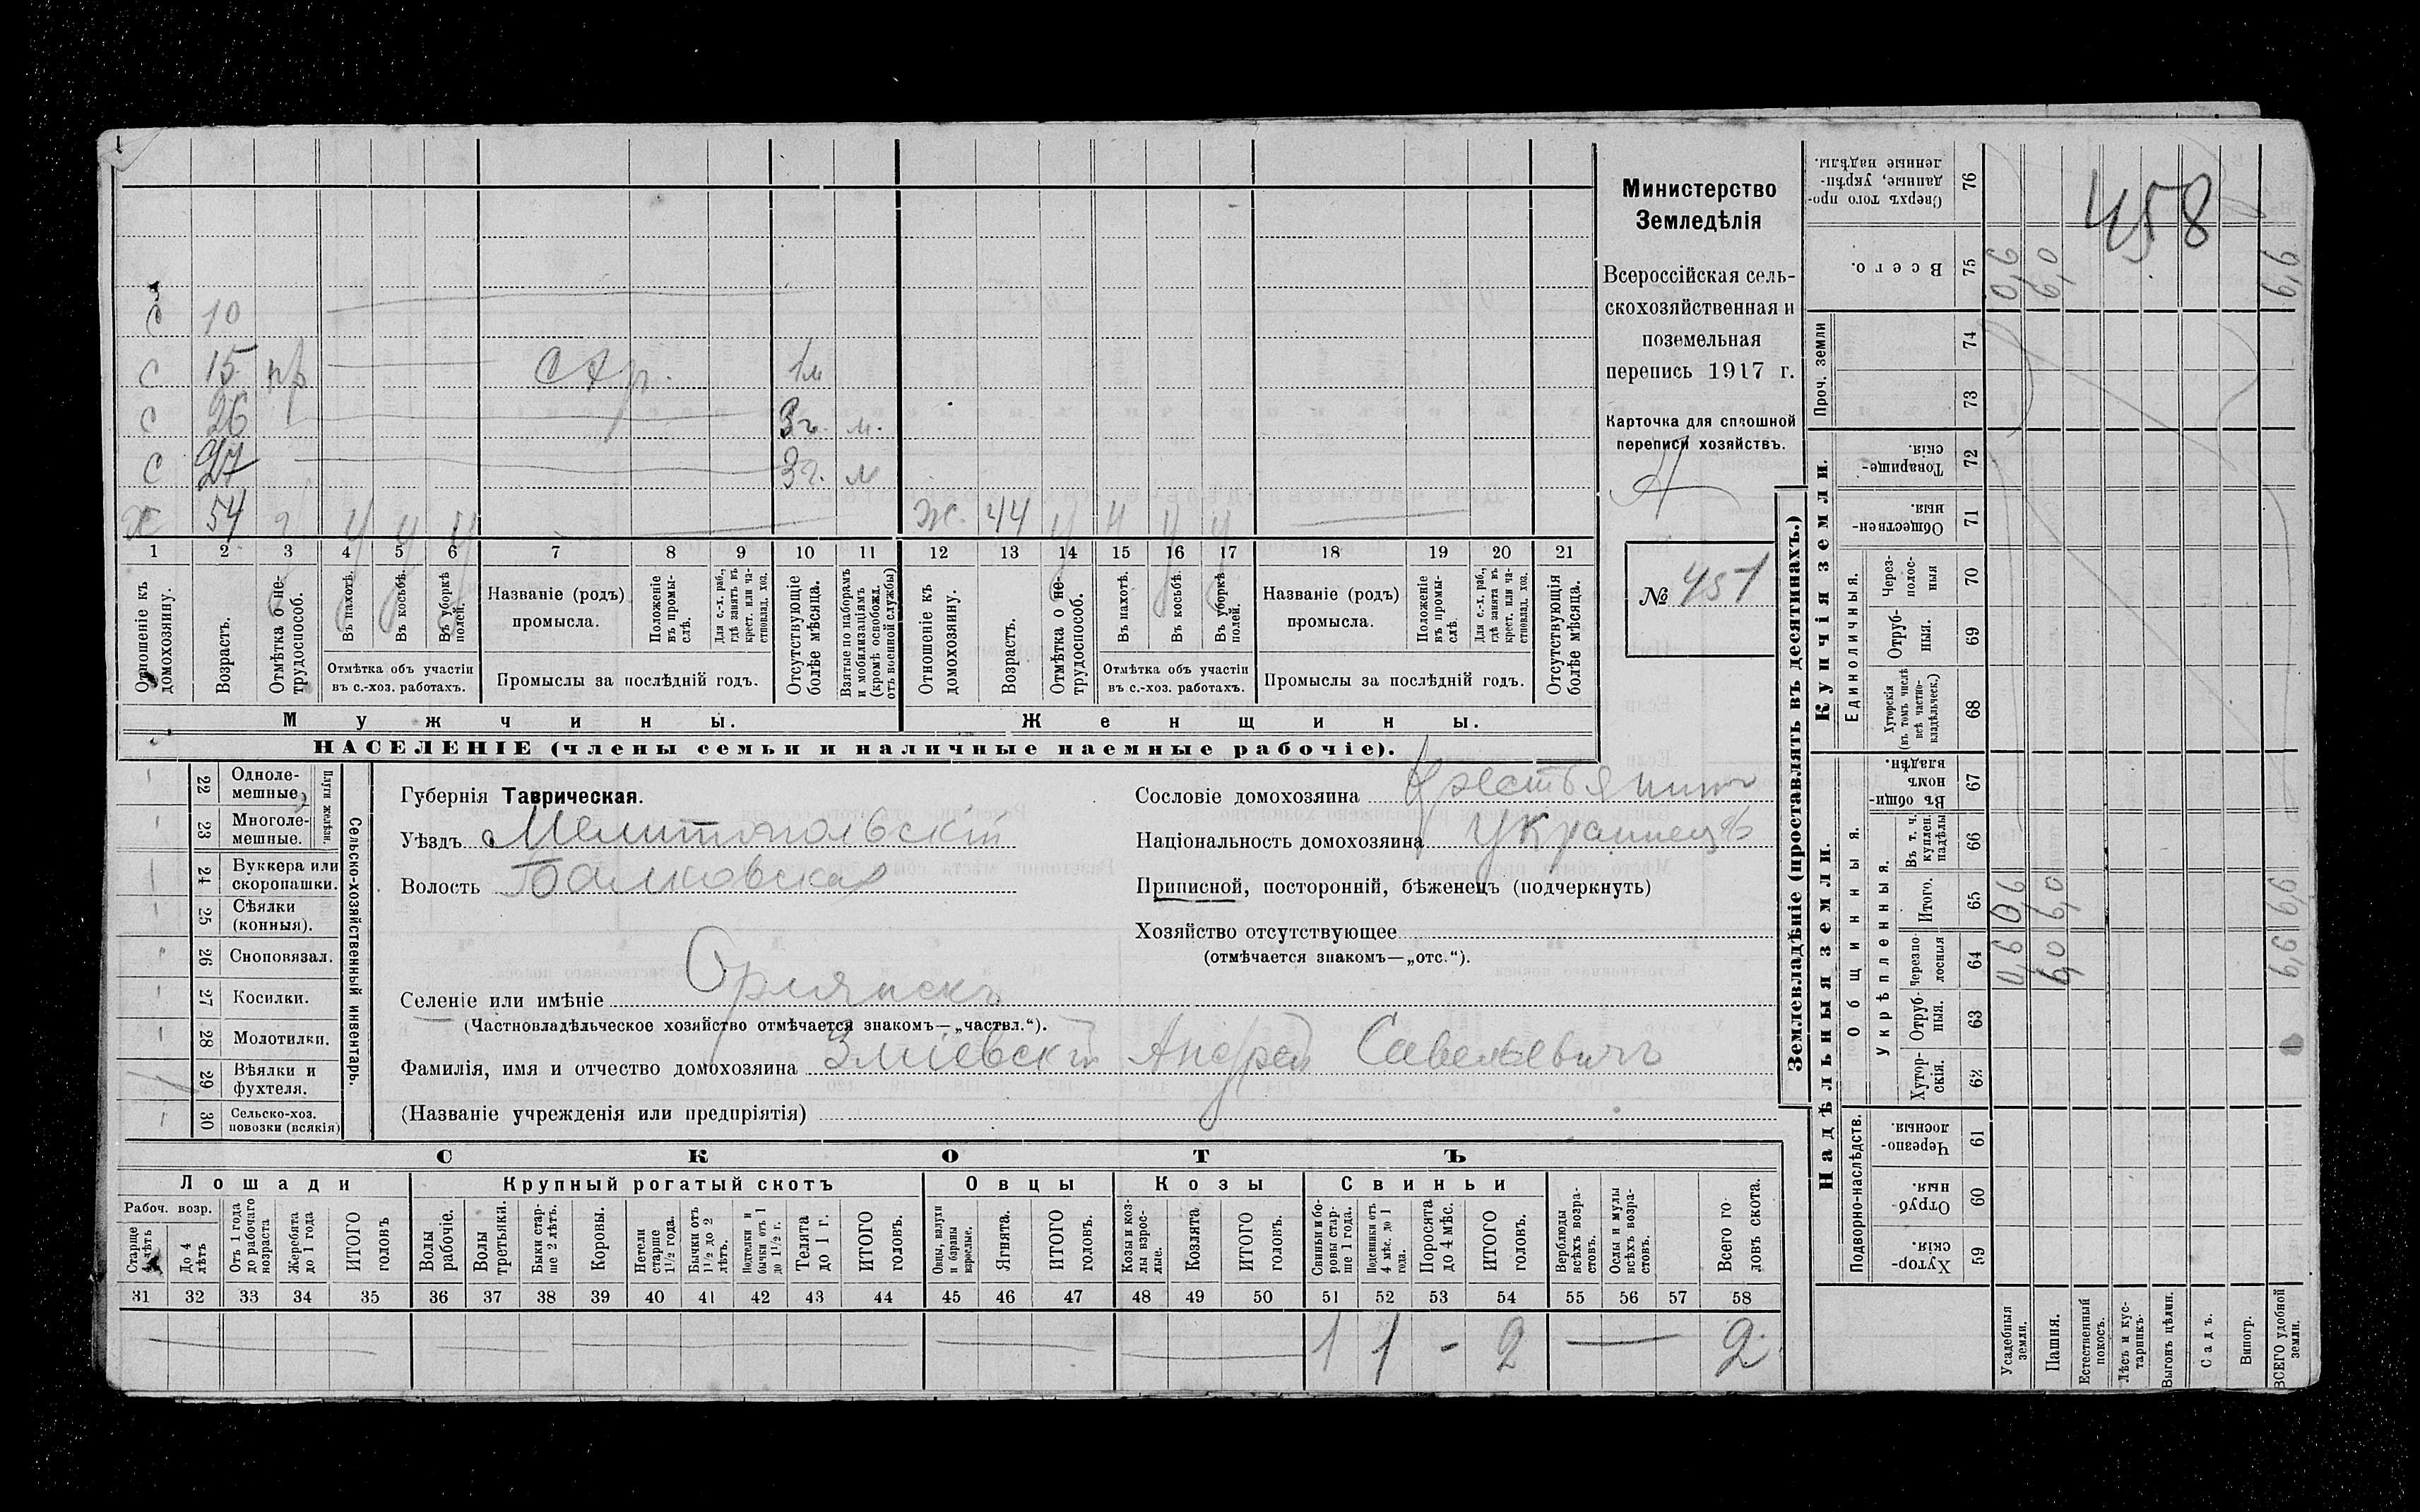 458
Министерство
Земледѣлія
Всероссійская сель-
скохозяйственная и
поземельная
перепись 1917 г.
Карточка для сплошной
переписи хозяйствъ.
№ 457
С 10
С 15 нр стр. 1м
С 26 3г. м.
С 27 3г. м
Х 54 У У У Ж. 44 У Н У У
1 2 3 4 5 6 7 8 9 10 11 12 13 14 15 16 17 18 19 20 21
Отношеніе къ домохозяину.
Возрастъ.
Отмѣтка о не-трудоспособ.
Въ пахотѣ.
Въ косьбѣ.
Въ уборкѣ полей.
Отмѣтка объ участіи
въ с.-хоз. работахъ.
Названіе (родъ)
промысла.
Положеніе въ промы-слѣ.
Для с.-х. раб., гдѣ занятъ въ крест. или ча-стновлад. хоз.
Промыслы за послѣдній годъ.
Отсутствующіе болѣе мѣсяца.
Взятые по наборамъ и мобилизаціямъ (кромѣ освобожд. отъ военной службы)
Отношеніе къ домохозяину.
Возрастъ.
Отмѣтка о не-трудоспособ.
Въ пахотѣ.
Въ косьбѣ.
Въ уборкѣ полей.
Отмѣтка объ участіи
въ с.-хоз. работахъ.
Названіе (родъ)
промысла.
Положеніе въ промы-слѣ
Для с.-х. раб., гдѣ занята въ крест. или ча-стновлад. хоз.
Промыслы за послѣдній годъ.
Отсутствующія болѣе мѣсяца.
Мужчины. Женщины.
НАСЕЛЕНІЕ (члены семьи и наличные наемные рабочіе).
Сельско-хозяйственный инвентарь.
Плуги желѣзн.
22 Одноле-мешные
23 Многоле-мешные.
24 Буккера или скоропашки.
25 Сѣялки (конныя).
26 Сноповязал.
27 Косилки.
28 Молотилки.
29 Вѣялки и фухтеля. 1
30 Сельско-хоз. повозки (всякія)
Губернія Таврическая.
Уѣздъ Мелитопольскій
Волость Балковская
Селеніе или имѣніе Орлянскъ
(Частновладѣльческое хозяйство отмѣчается знакомъ—„частвл.“).
Фамилія, имя и отчество домохозяина Зміевскій Андрей Савельевичъ
(Названіе учрежденія или предпріятія)
Сословіе домохозяина Крестьянинъ
Національность домохозяина Украинецъ
Приписной, посторонній, бѣженецъ (подчеркнуть)
Хозяйство отсутствующее
(отмѣчается знакомъ—„отс.“).
СКОТЪ
Лошади
Рабоч. возр.
Старше 4 лѣтъ
До 4 лѣтъ
Отъ 1 года до рабочаго возраста
Жеребята до 1 года
ИТОГО головъ
Крупный рогатый скотъ
Волы рабочіе.
Волы третьяки.
Быки стар-ше 2 лѣтъ.
Коровы.
Нетели старше 1½ года.
Бычки отъ 1½ до 2 лѣтъ.
Подтелки и бычки отъ 1 до 1½ г.
Телята до 1 г.
ИТОГО головъ.
Овцы
Овцы, валухи и бараны взрослые.
Ягнята.
ИТОГО головъ.
Козы
Козы и коз-лы взрос-лые.
Козлята
ИТОГО головъ.
Свиньи
Свиньи и бо-ровы стар-ше 1 года.
Подсвинки отъ 4 мѣс. до 1 года.
Поросята до 4 мѣс.
ИТОГО головъ.
Верблюды всѣхъ возра-стовъ.
Ослы и мулы всѣхъ возра-стовъ.
Всего го-ловъ скота.
31 32 33 34 35 36 37 38 39 40 41 42 43 44 45 46 47 48 49 50 51 52 53 54 55 56 57 58
1 1 - 2 — 2
Землевладѣніе (проставлять въ десятинахъ.)
Надѣльныя земли.
Купчія земли.
Подворно-наслѣдств.
Общинныя.
Укрѣпленныя.
Единоличныя.
Проч. земли
Сверхъ того про-данные, укрѣп-ленные надѣлы. 76
Всего. 75 0,6 6,0 6,6
74
73
Товарище-скія. 72
Обществен-ныя. 71
Через-полос-ныя 70
Отруб-ныя. 69
Хуторскія (въ томъ числѣ всѣ частно-владѣльческ.) 68
Въ общин-номъ владѣн. 67
Въ т. ч. куплен. надѣлы 66
Итого. 65 0,6 6,0 6,6
Черезпо-лосныя 64 0,6 6,0 6,6
Отруб-ныя. 63
Хутор-скія. 62
Черезпо-лосныя. 61
Отруб-ныя. 60
Хутор-скія. 59
Усадебныя земли.
Пашня.
Естественный покосъ.
Лѣсъ и кус-тарникъ.
Выгонъ цѣлин.
Садъ.
Виногр.
ВСЕГО удобной земли.